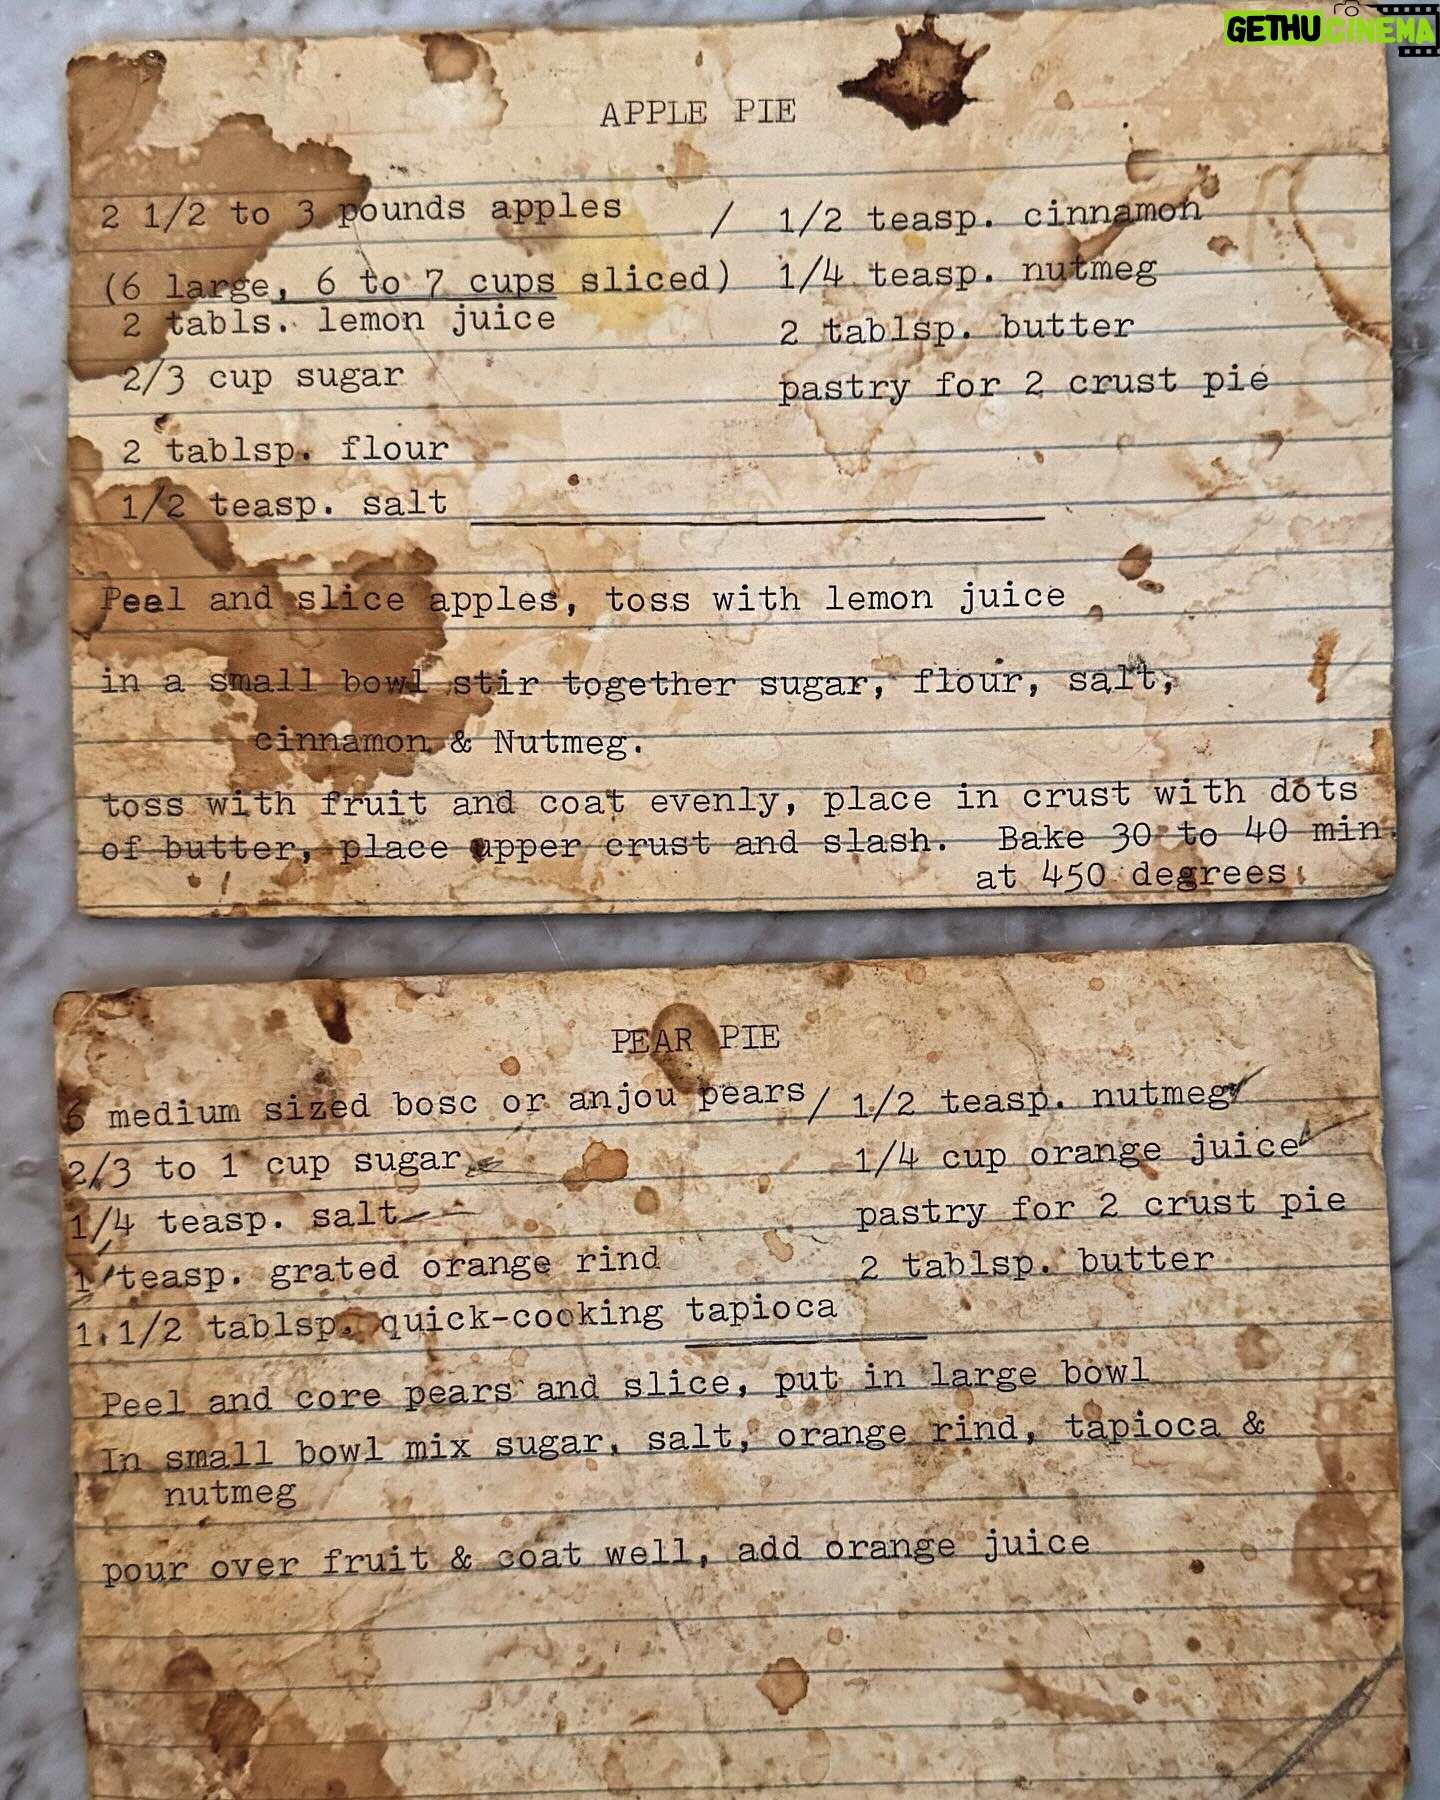 GETHU CINEMA
APPLE PIE
2 1/2 to 3 pounds apples / 1/2 teasp. cinnamon
(6 large, 6 to 7 cups sliced) 1/4 teasp. nutmeg
2 tabls. lemon juice 2 tablsp. butter
2/3 cup sugar pastry for 2 crust pie
2 tablsp. flour
1/2 teasp. salt
Peel and slice apples, toss with lemon juice
in a small bowl stir together sugar, flour, salt,
cinnamon & Nutmeg.
toss with fruit and coat evenly, place in crust with dots
of butter, place upper crust and slash. Bake 30 to 40 min.
at 450 degrees.
PEAR PIE
6 medium sized bosc or anjou pears / 1/2 teasp. nutmeg
2/3 to 1 cup sugar 1/4 cup orange juice
1/4 teasp. salt pastry for 2 crust pie
1 teasp. grated orange rind 2 tablsp. butter
1.1/2 tablsp. quick-cooking tapioca
Peel and core pears and slice, put in large bowl
In small bowl mix sugar, salt, orange rind, tapioca &
nutmeg
pour over fruit & coat well, add orange juice